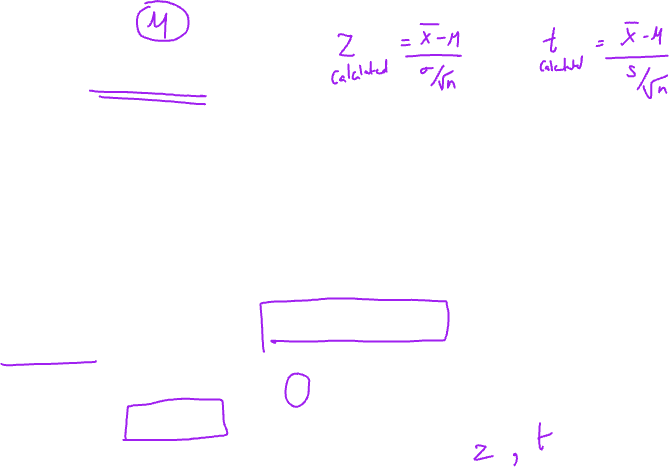 μ
Z calculated = x̄-μ / σ/√n
t calculated = x̄-μ / s/√n
0
z , t